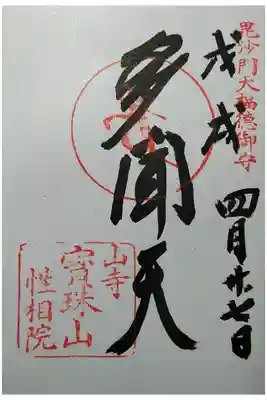 毘沙門天福徳御守
戊戌
四月廿七日
多聞天
山寺
宝珠山
性相院